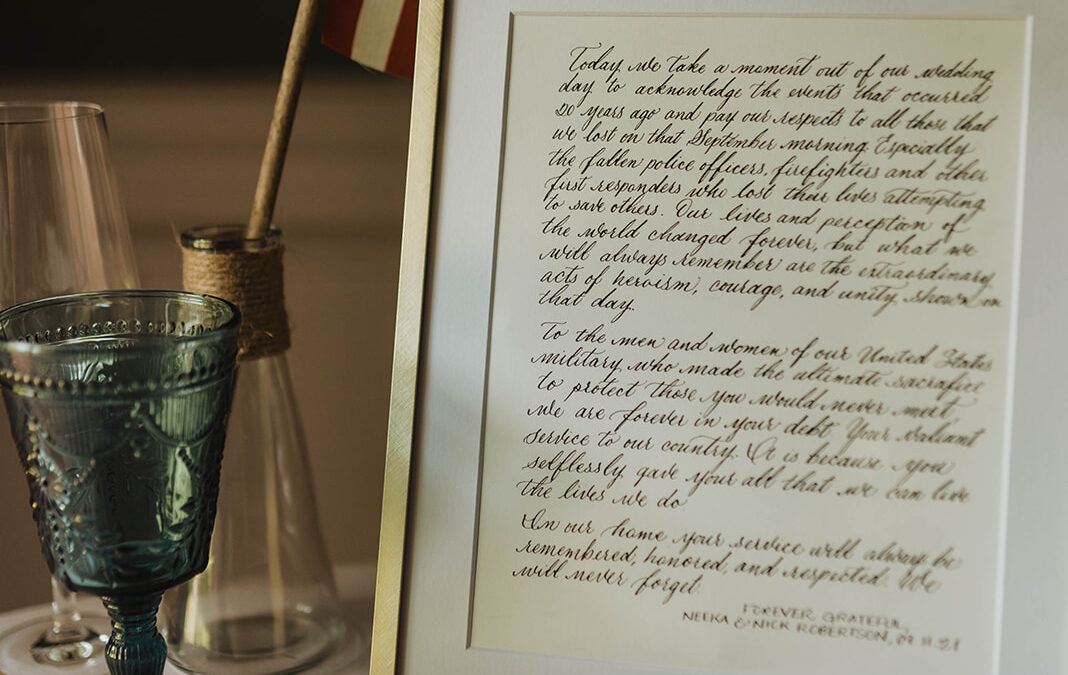 Today, we take a moment out of our wedding
day to acknowledge the events that occurred
20 years ago and pay our respects to all those that
we lost on that September morning. Especially
the fallen police officers, firefighters and other
first responders who lost their lives attempting
to save others. Our lives and perception of
the world changed forever, but what we
will always remember are the extraordinary
acts of heroism, courage, and unity shown on
that day.
To the men and women of our United States
military who made the ultimate sacrafice
to protect those you would never meet
we are forever in your debt. Your valiant
service to our country. It is because you
selflessly gave your all that we can live
the lives we do
In our home your service will always be
remembered, honored, and respected. We
will never forget.
FOREVER GRATEFUL,
NEEKA & NICK ROBERTSON, 09.11.21